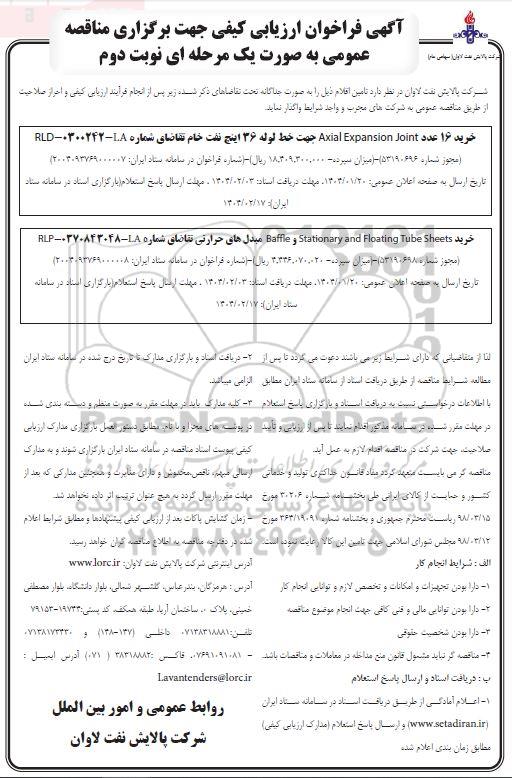 آگهی فراخوان ارزیابی کیفی جهت برگزاری مناقصه
عمومی به صورت یک مرحله ای نوبت دوم
شرکت پالایش نفت لاوان (سهامی عام)
شرکت پالایش نفت لاوان در نظر دارد تامین اقلام ذیل را به صورت جداگانه تحت تقاضاهای ذکر شده زیر پس از انجام فرآیند ارزیابی کیفی و احراز صلاحیت
از طریق مناقصه عمومی به شرکت های مجرب و واجد شرایط واگذار نماید.
خرید ۱۶ عدد Axial Expansion Joint جهت خط لوله ۳۶ اینچ نفت خام تقاضای شماره RLD-۰۳۰۰۲۴۲-LA
(مجوز شماره ۵۳۱۹۰۶۹۶)-(میزان سپرده- ۱۸,۴۰۹,۳۰۰,۰۰۰ ریال)-(شماره فراخوان در سامانه ستاد ایران: ۲۰۰۴۰۹۳۷۶۹۰۰۰۰۰۷)
تاریخ ارسال به صفحه اعلان عمومی: ۱۴۰۴/۰۱/۲۰، مهلت دریافت اسناد: ۱۴۰۴/۰۲/۰۳ ، مهلت ارسال پاسخ استعلام(بارگزاری اسناد در سامانه ستاد
ایران): ۱۴۰۴/۰۲/۱۷
خرید Stationary and Floating Tube Sheets و Baffle مبدل های حرارتی تقاضای شماره RLP-۰۳۷۰۸۴۳۰۴۸-LA
(مجوز شماره ۵۳۱۹۰۶۹۸)-(میزان سپرده- ۴,۴۴۶,۰۷۰,۰۲۰ ریال)-(شماره فراخوان در سامانه ستاد ایران: ۲۰۰۴۰۹۳۷۶۹۰۰۰۰۰۸)
تاریخ ارسال به صفحه اعلان عمومی: ۱۴۰۴/۰۱/۲۰، مهلت دریافت اسناد: ۱۴۰۴/۰۲/۰۳ ، مهلت ارسال پاسخ استعلام(بارگزاری اسناد در سامانه
ستاد ایران): ۱۴۰۴/۰۲/۱۷
لذا از متقاضیانی که دارای شرایط زیر می باشند دعوت می گردد تا پس از
مطالعه شرایط مناقصه از طریق دریافت اسناد از سامانه ستاد ایران مطابق
با اطلاعات درخواستی نسبت به دریافت اسناد و بارگزاری پاسخ استعلام
در مهلت مقرر شده در سامانه مذکور اقدام نمایند تا پس از ارزیابی و تأیید
صلاحیت، جهت شرکت در مناقصه اقدام لازم به عمل آید.
مناقصه گر می بایست متعهد گردد مفاد قانون حداکثری تولید و خدماتی
کشور و حمایت از کالای ایرانی طی بخشنامه شماره ۳۰۲۰۶ مورخ
۹۸/۰۳/۱۵ ریاست محترم جمهوری و بخشنامه شماره ۳۶۴/۱۹۰۹۱ مورخ
۹۸/۰۳/۱۲ مجلس شورای اسلامی جهت تامین این کالا رعایت نموده است.
الف : شرایط انجام کار
۱- دارا بودن تجهیزات و امکانات و تخصص لازم و توانایی انجام کار
۲- دارا بودن توانایی مالی و فنی کافی جهت انجام موضوع مناقصه
۳- دارا بودن شخصیت حقوقی
۴- مناقصه گر نباید مشمول قانون منع مداخله در معاملات و مناقصات باشد.
ب : دریافت اسناد و ارسال پاسخ استعلام
۱- اعلام آمادگی از طریق دریافت اسناد در سامانه ستاد ایران
(www.setadiran.ir) و ارسال پاسخ استعلام (مدارک ارزیابی کیفی)
مطابق زمان بندی اعلام شده
۲- دریافت اسناد و بارگزاری مدارک تا تاریخ درج شده در سامانه ستاد ایران
الزامی میباشد.
۳- کلیه مدارک باید در مهلت مقرر به صورت منظم و دسته بندی شده
در پوشه های مجزا و با نام، مطابق دستور العمل بارگزاری مدارک ارزیابی
کیفی پیوست اسناد مناقصه در سامانه ستاد ایران بارگزاری شوند و به مدارک
ارسالی مبهم، ناقص،مخدوش و دارای مغایرت و همچنین مدارکی که بعد از
مهلت مقرر ارسال گردد به هیچ عنوان ترتیب اثر داده نخواهد شد.
- زمان گشایش پاکات بعد از ارزیابی کیفی پیشنهادها و مطابق شرایط اعلام
شده در دفترچه مناقصه به اطلاع مناقصه گران خواهد رسید.
آدرس اینترنتی شرکت پالایش نفت لاوان: www.lorc.ir
آدرس : هرمزگان، بندرعباس، گلشهر شمالی، بلوار دانشگاه، بلوار مصطفی
خمینی، پلاک ۰، ساختمان آریا، طبقه همکف، کد پستی: ۱۹۷۴۴-۷۹۱۵۳
تلفن: ۰۷۱۳۸۳۱۸۸۸۱ داخلی (۱۴۷-۱۴۸) و ۰۷۱۳۸۱۷۳۴۳۰
- ۰۷۶۹۱۰۹۱۰۸۱. فاکس : ۳۸۳۱۸۸۸۲ ( ۰۷۱) آدرس ایمیل :
Lavantenders@lorc.ir
روابط عمومی و امور بین الملل
شرکت پالایش نفت لاوان